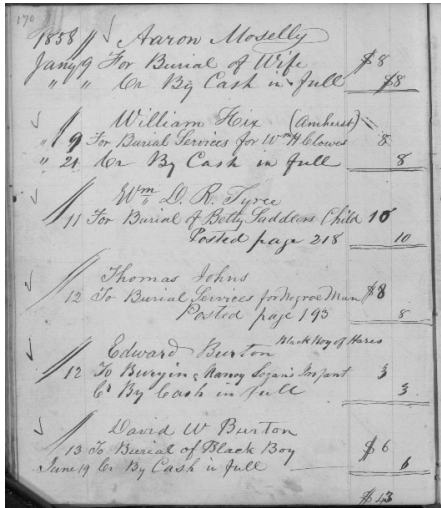 170
1858 Aaron Moselly
Jany 9 For Burial of Wife $8
" " Cr By Cash in full $8
William Hix (Amherst)
" 9 For Burial Services for Wm H Clowes 8
" 21 Cr By Cash in full 8
Wm D. R. Tyree
11 For Burial of Betty Saddlers Child 10
Posted page 218 10
Thomas Johns
12 To Burial Services for Negroe Man $8
Posted page 193 8
Edward Burton Black Boy of Hares
12 To Burying Nancy Logans Infant 3
Cr By Cash in full 3
David W Burton
13 To Burial of Black Boy $6
June 19 Cr By Cash in full 6
$43